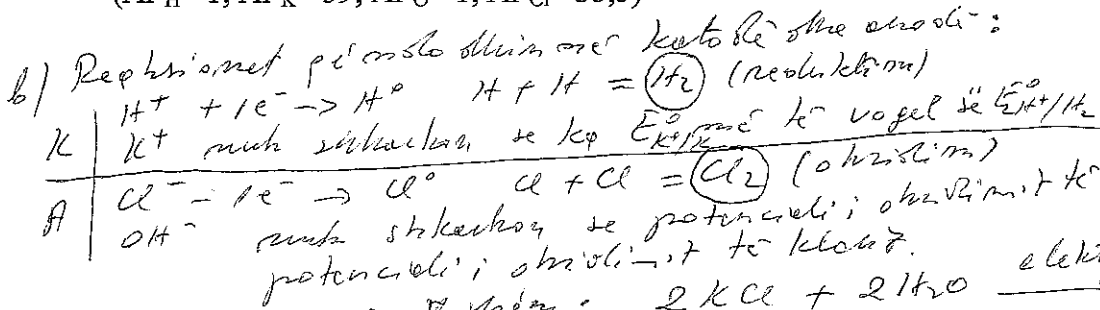 (Ar H = 1, Ar K = 39, Ar O = 1, Ar Cl = 35,5)
b) Reaksionet që ndodhin në katodë dhe anodë :
H⁺ + 1e⁻ → H⁰ H + H = H₂ (reduktim)
K K⁺ nuk shkarkon se ka E⁰K⁺/K më të vogël së E⁰2H⁺/H₂
A Cl⁻ - 1e⁻ → Cl⁰ Cl + Cl = Cl₂ (oksidim)
OH⁻ nuk shkarkon se potenciali i oksidimit të
potenciali i oksidimit të klorit.
2 KCl + 2 H₂O